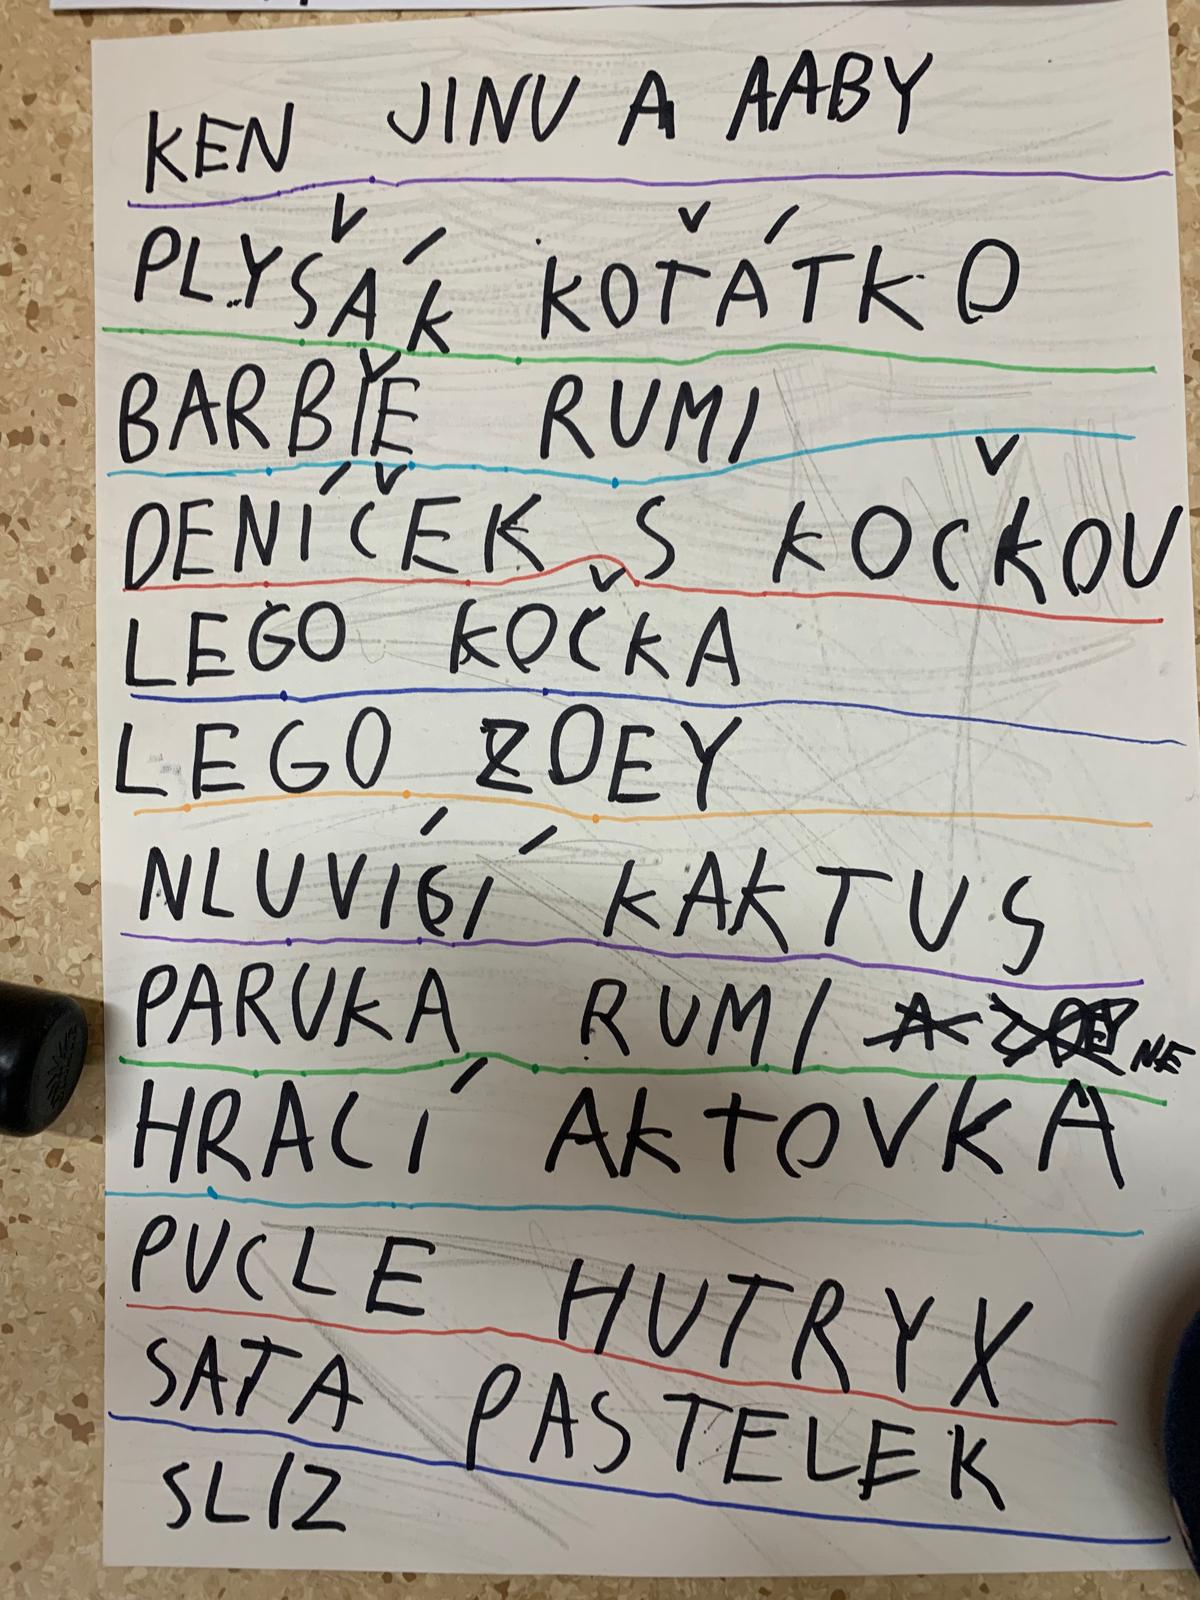 KEN JINU A AABY
PLYŠÁK KOŤÁTKO
BARBIE RUMI
DENÍČEK S KOČKOU
LEGO KOČKA
LEGO ZOEY
NLUVÍCÍ KAKTUS
PARUKA RUMI A ZOEY NE
HRACÍ AKTOVKA
PUCLE HUTRYX
SATA PASTELEK
SLIZ